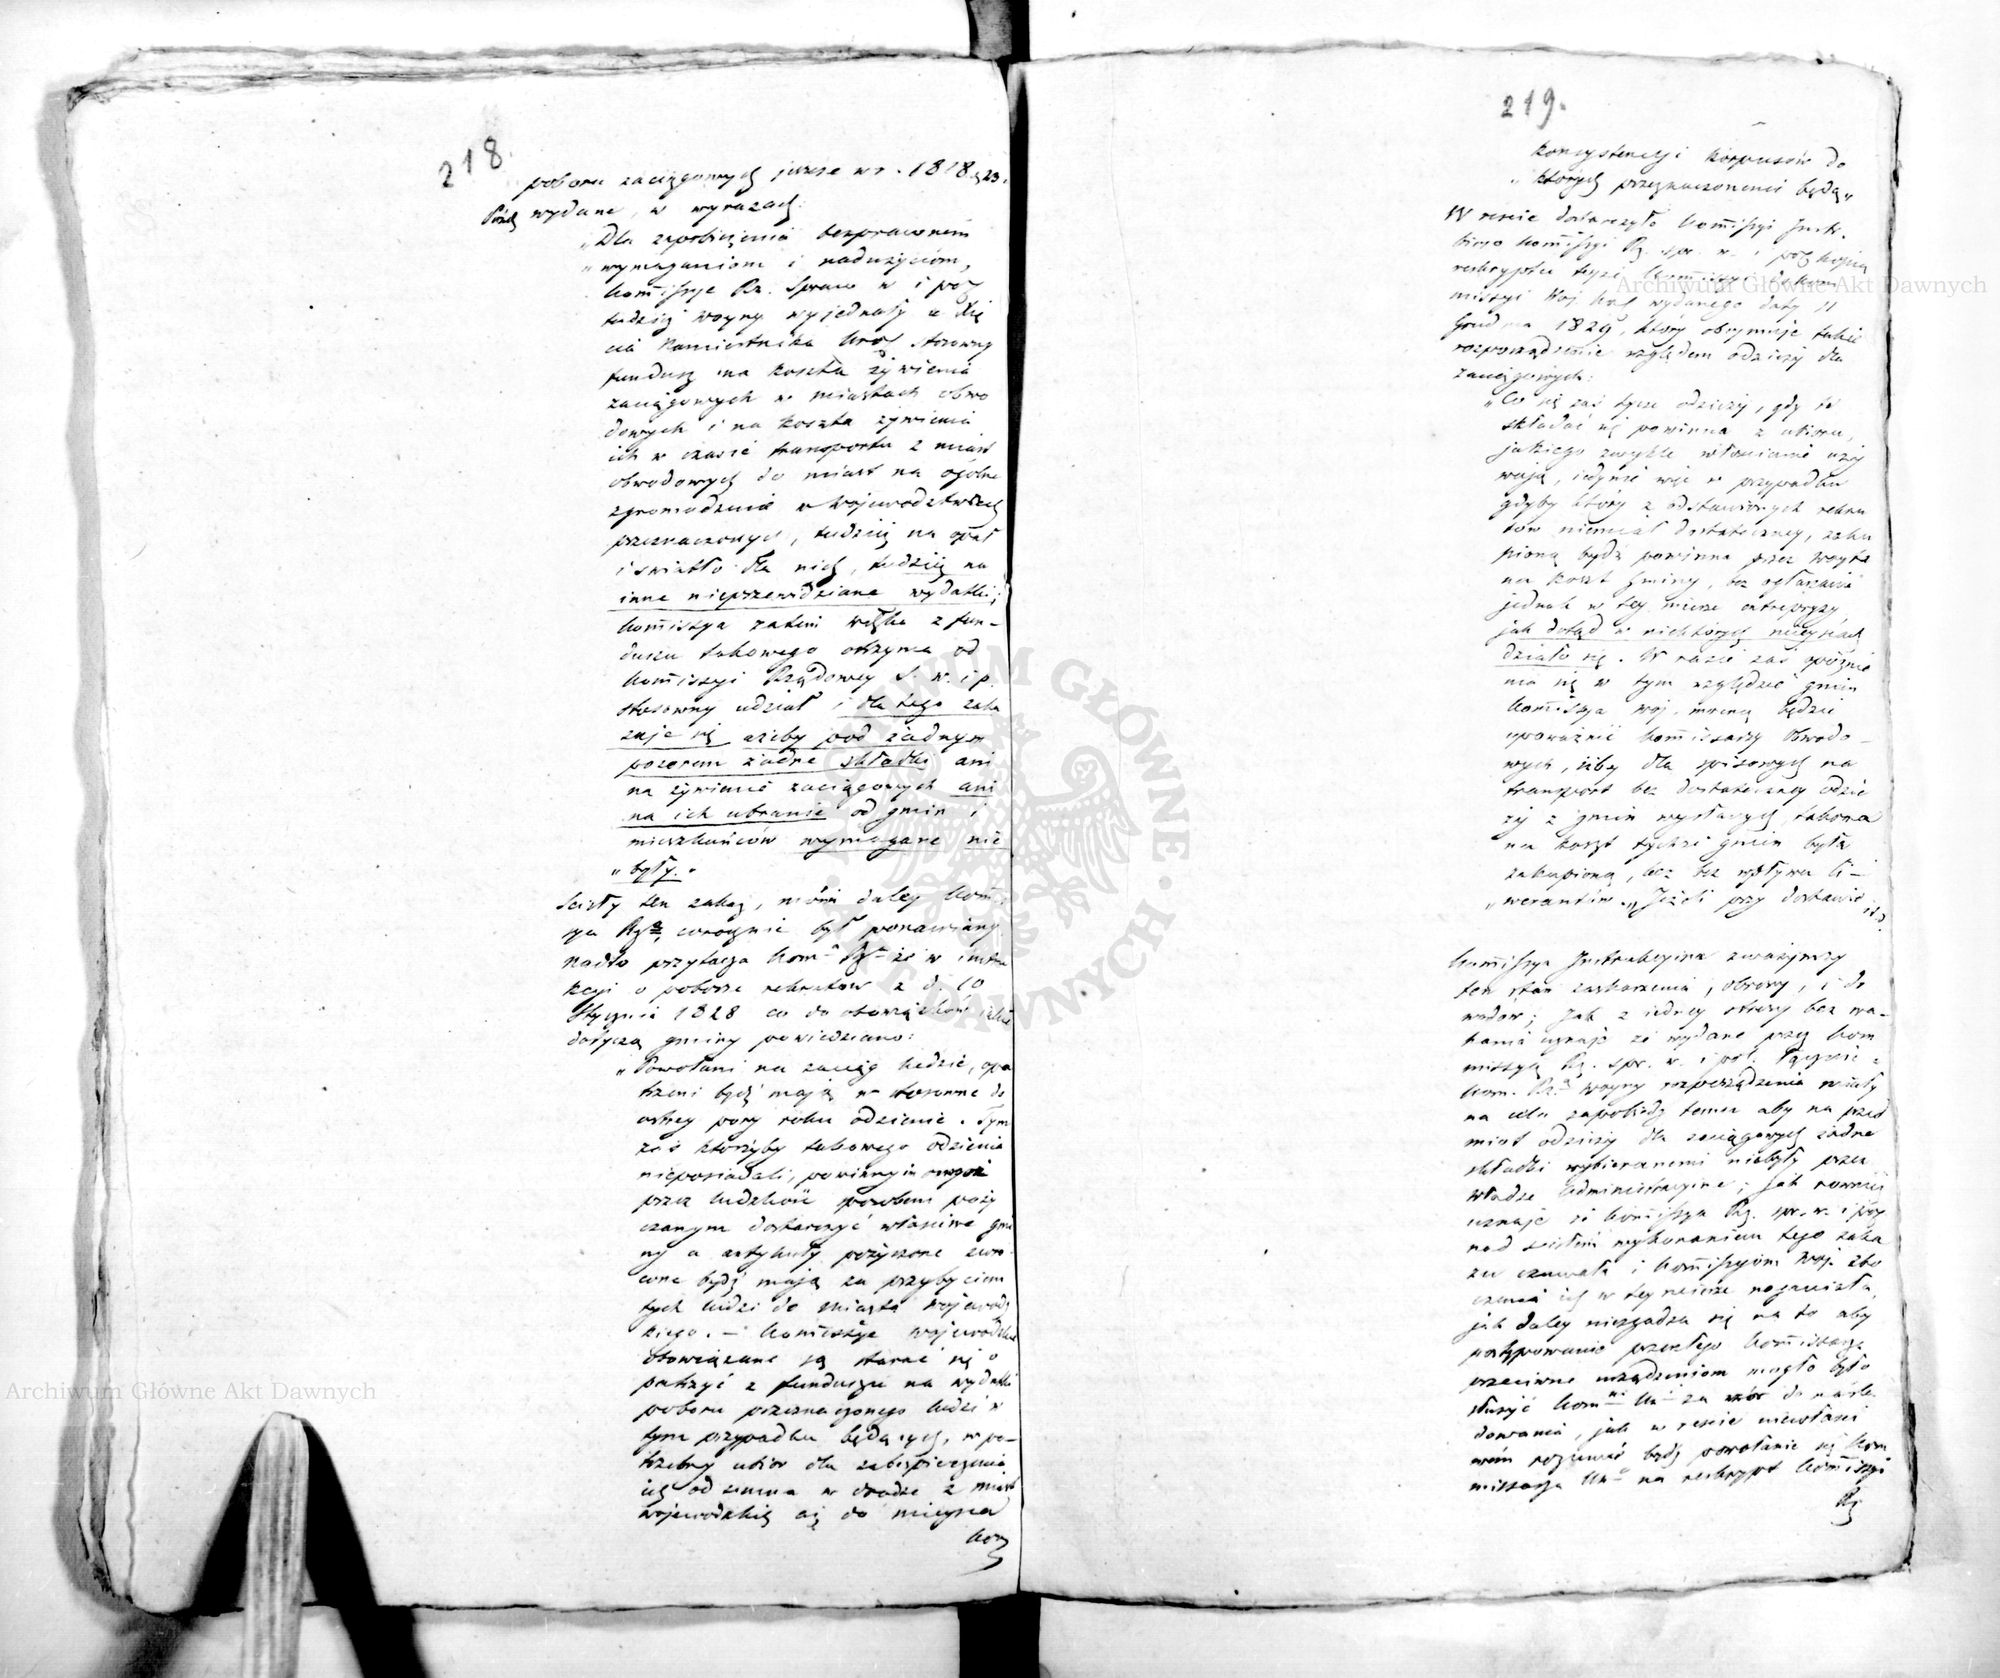 218.
poboru zaciągowych jeszcze w r. 1818 23.
Paźd wydane, w wyrazach:
„Dla zapobieżenia bezprawnem
„wymaganiom i nadużyciom,
kommissye Rz. Spraw w i pol
tudzież woyny wyjednały u Xię
cia Namiestnika Król stosowny
fundusz na koszta żywienia
zaciągowych w miastach obwo
dowych i na koszta żywienia
ich w czasie transportu z miast
obwodowych do miast na ogólne
zgromadzenie w Województwach
przeznaczonych, tudzież na opał
i światło dla nich, tudzież na
inne nieprzewidziane wydatki;
kommissya zatem Wdzka z fun-
duszu takowego otrzyma od
kommissyi Rządowey S. w. i p.
stosowny udział i dla tego zaka
zuje się ażeby pod żadnym
pozorem żadne składki ani
na żywienie zaciągowych ani
na ich ubranie od gmin i
mieszkańców wymagane nie
„były.„
Ścisły ten zakaz, mówi daley Kom
sya Rzwa, corocznie był ponawiany
nadto przytacza Kom Rz że w instru
kcyi o poborze rekrutów z d. 10
Stycznia 1828 co do obowiązków jakie
dotyczą gminy powiedziano:
„Powołani na zaciąg ludzie, opa
trzeni być mają w stosowne do
ostrey pory roku odzienie. Tym
zaś którzyby takowego odzienia
nieposiadali, powinny im
przez ludzkość sposobem poży
czanym dostarczyć właściwe gmi
ny a artykuły pożyczone zwró
cone być mają za przybyciem
tych ludzi do miasta wojewódz
kiego. – Kommissye wojewódzkie
obowiązane są starać się o
patrzyć z funduszu na wydatki
poboru przeznaczonego ludzi w
tym przypadku będących, w po-
trzebny ubiór dla zabezpieczenia
ich od zimna w drodze z miast
wojewódzkich aż do mieysca
kon
219.
konsystencyi korpusów do
„których przeznaczonemi będą„
W reście dostarczyło kommissyi Instr.
biuro kommissyi Rz. spr. w. i pol kopią
reskryptu tejże kommissyi do kom
missyi Woj kal wydanego daty 11
Grudnia 1829, który obejmuje takie
rozporządzenie względem odzieży dla
zaciągowych:
„Co się zaś tycze odzieży, gdy ta
składać się powinna z ubioru,
jakiego zwykle włościanie uży
wają, jedynie więc w przypadku
gdyby który z odstawionych rekru
tów niemiał dostateczney, zaku
pioną bydź powinna przez woyta
na koszt gminy, bez ogłaszania
jednak w tey mierze entrepryzy
jak dotąd w niektórych mieyscach
działo się. W razie zaś opóźnie
nia się w tym względzie gmin
kommissya woj. mocna będzie
upoważnić kommissarzy Obwodo-
wych, iżby dla spisowych na
transport bez dostateczney odzie
ży z gmin wysłanych takowa
na koszt tychże gmin była
zakupioną, lecz bez wpływu li-
„werantów.„ Jeżeli przy dostawie itd.
Kommissya Instrukcyina zważywszy
ten stan zaskarżenia, obrony, i do
wodów; Jak z jedney strony bez wa-
hania uznaje że wydane przez kom
missyą Rz. spr. w. i pol. łącznie z
kom. Rz. woyny rozporządzenia miały
na celu zapobiedz temu aby na przed
miot odzieży dla zaciągowych żadne
składki wybieranemi niebyły przez
władze administracyine; jak również
uznaje że kommissya Rz. spr. w. i pol
nad ścisłem wykonaniem tego zaka
zu czuwała i kommissyom Woj. zbo
czenia ich w tey mierze naganiała,
jak daley niezgadza się na to aby
postępowanie przeszłego kommissarza
przeciwne urządzeniom mogło było
służyć kom za wzór do naśla
dowania, jak w reście niewłaści
wém rozumie bydź powołanie się kom
missarza na reskrypt kommissyi
Rz